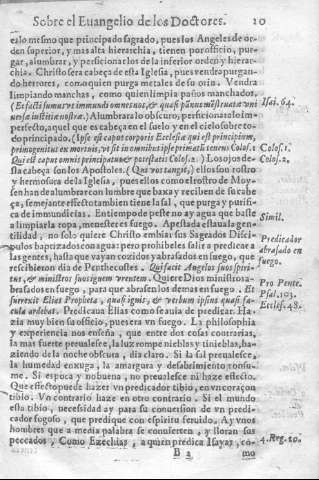 Sobre el Euangelio de los Doctores. 10
ea lo mesmo que principado sagrado, pues los Angeles de or-
den superior, y mas alta hierarchia, tienen por officio, pur-
gar, alumbrar, y perficionar los de la inferior orden y hierar-
chia. Christo sera cabeça de esta Iglesia, pues vendra purgan-
do herrores, como quien purga metales de su orin. Vendra
limpiando manchas, como quien limpia paños manchados,
(Et facti sumus vt immundi omnes nos, & quasi pannus mẽstruatæ vni
uersæ iustitiæ nostræ.) Alumbrara lo obscuro, perficionara lo im-
perfecto, aquel que es cabeça en el suelo y en el cielo sobre to-
do principado. (Ipse est caput corporis Ecclesiæ qui est principium,
primogenitus ex mortuis, vt sit in omnibus ipse primatũ tenens Coloss. 1.
Qui est caput omnis principatus & potestatis Coloss. 2.) Los ojos de
sta cabeça son los Apostoles. (Qui vos tangit,) ellos son rostro
y hermosura de la Iglesia, pues ellos como el rostro de Moy-
sen han de alumbrar con lumbre que baxa y reciben de su cabe
ça; semejante effecto tambien tiene la sal, que purga y purifi-
ca de immundicias. En tiempo de peste no ay agua que baste
a limpiar la ropa, menester es fuego. Apestada estaua la gen-
tilidad, no solo quiere Christo embiar sus Sagrados Disci-
pulos baptizados con agua: pero prohibeles salir a predicar a
las gentes, hasta que vayan cozidos y abrasados en fuego, que
rescibieron dia de Penthecostes. Qui facit Angelos suos spiri-
tus, & ministros suos ignem vrentem. Quiere Dios ministros a-
brasados en fuego, para que abrasen los demas en fuego. Et
surrexit Elias Propheta, quasi ignis, & verbum ipsius quasi fa-
cula ardebat. Predicaua Elias como se auia de predicar. Ha-
zia muy bien su officio, pues era vn fuego. La philosophia
y experiencia nos enseña, que entre dos cosas contrarias,
la mas fuerte preualesce, la luz rompe nieblas y tinieblas, ha-
ziendo de la noche obscura, dia claro. Si la sal preualesce,
la humedad enxuga, la amargura y desabrimiento consu-
me. Si es poca y no buena, no preualesce ni haze effecto.
Que effecto puede hazer vn predicador tibio, en vn coraçon
tibio. Vn contrario haze en otro contrario. Si el mundo
esta tibio, necessidad ay para su conuersion de vn predi-
cador fogoso, que predique con espiritu feruido. Ay vnos
hombres que a media palabra se conuierten, y lloran sus
peccados, Como Ezechias, a quien predica Isayas, co-
B 2 mo
Isai. 64.
Colos. 1.
Colos. 2.
Simil.
Predicador
abrasado en
fuego.
Pro Pente.
Psal. 103.
Eccles. 48.
4. Reg. 20.